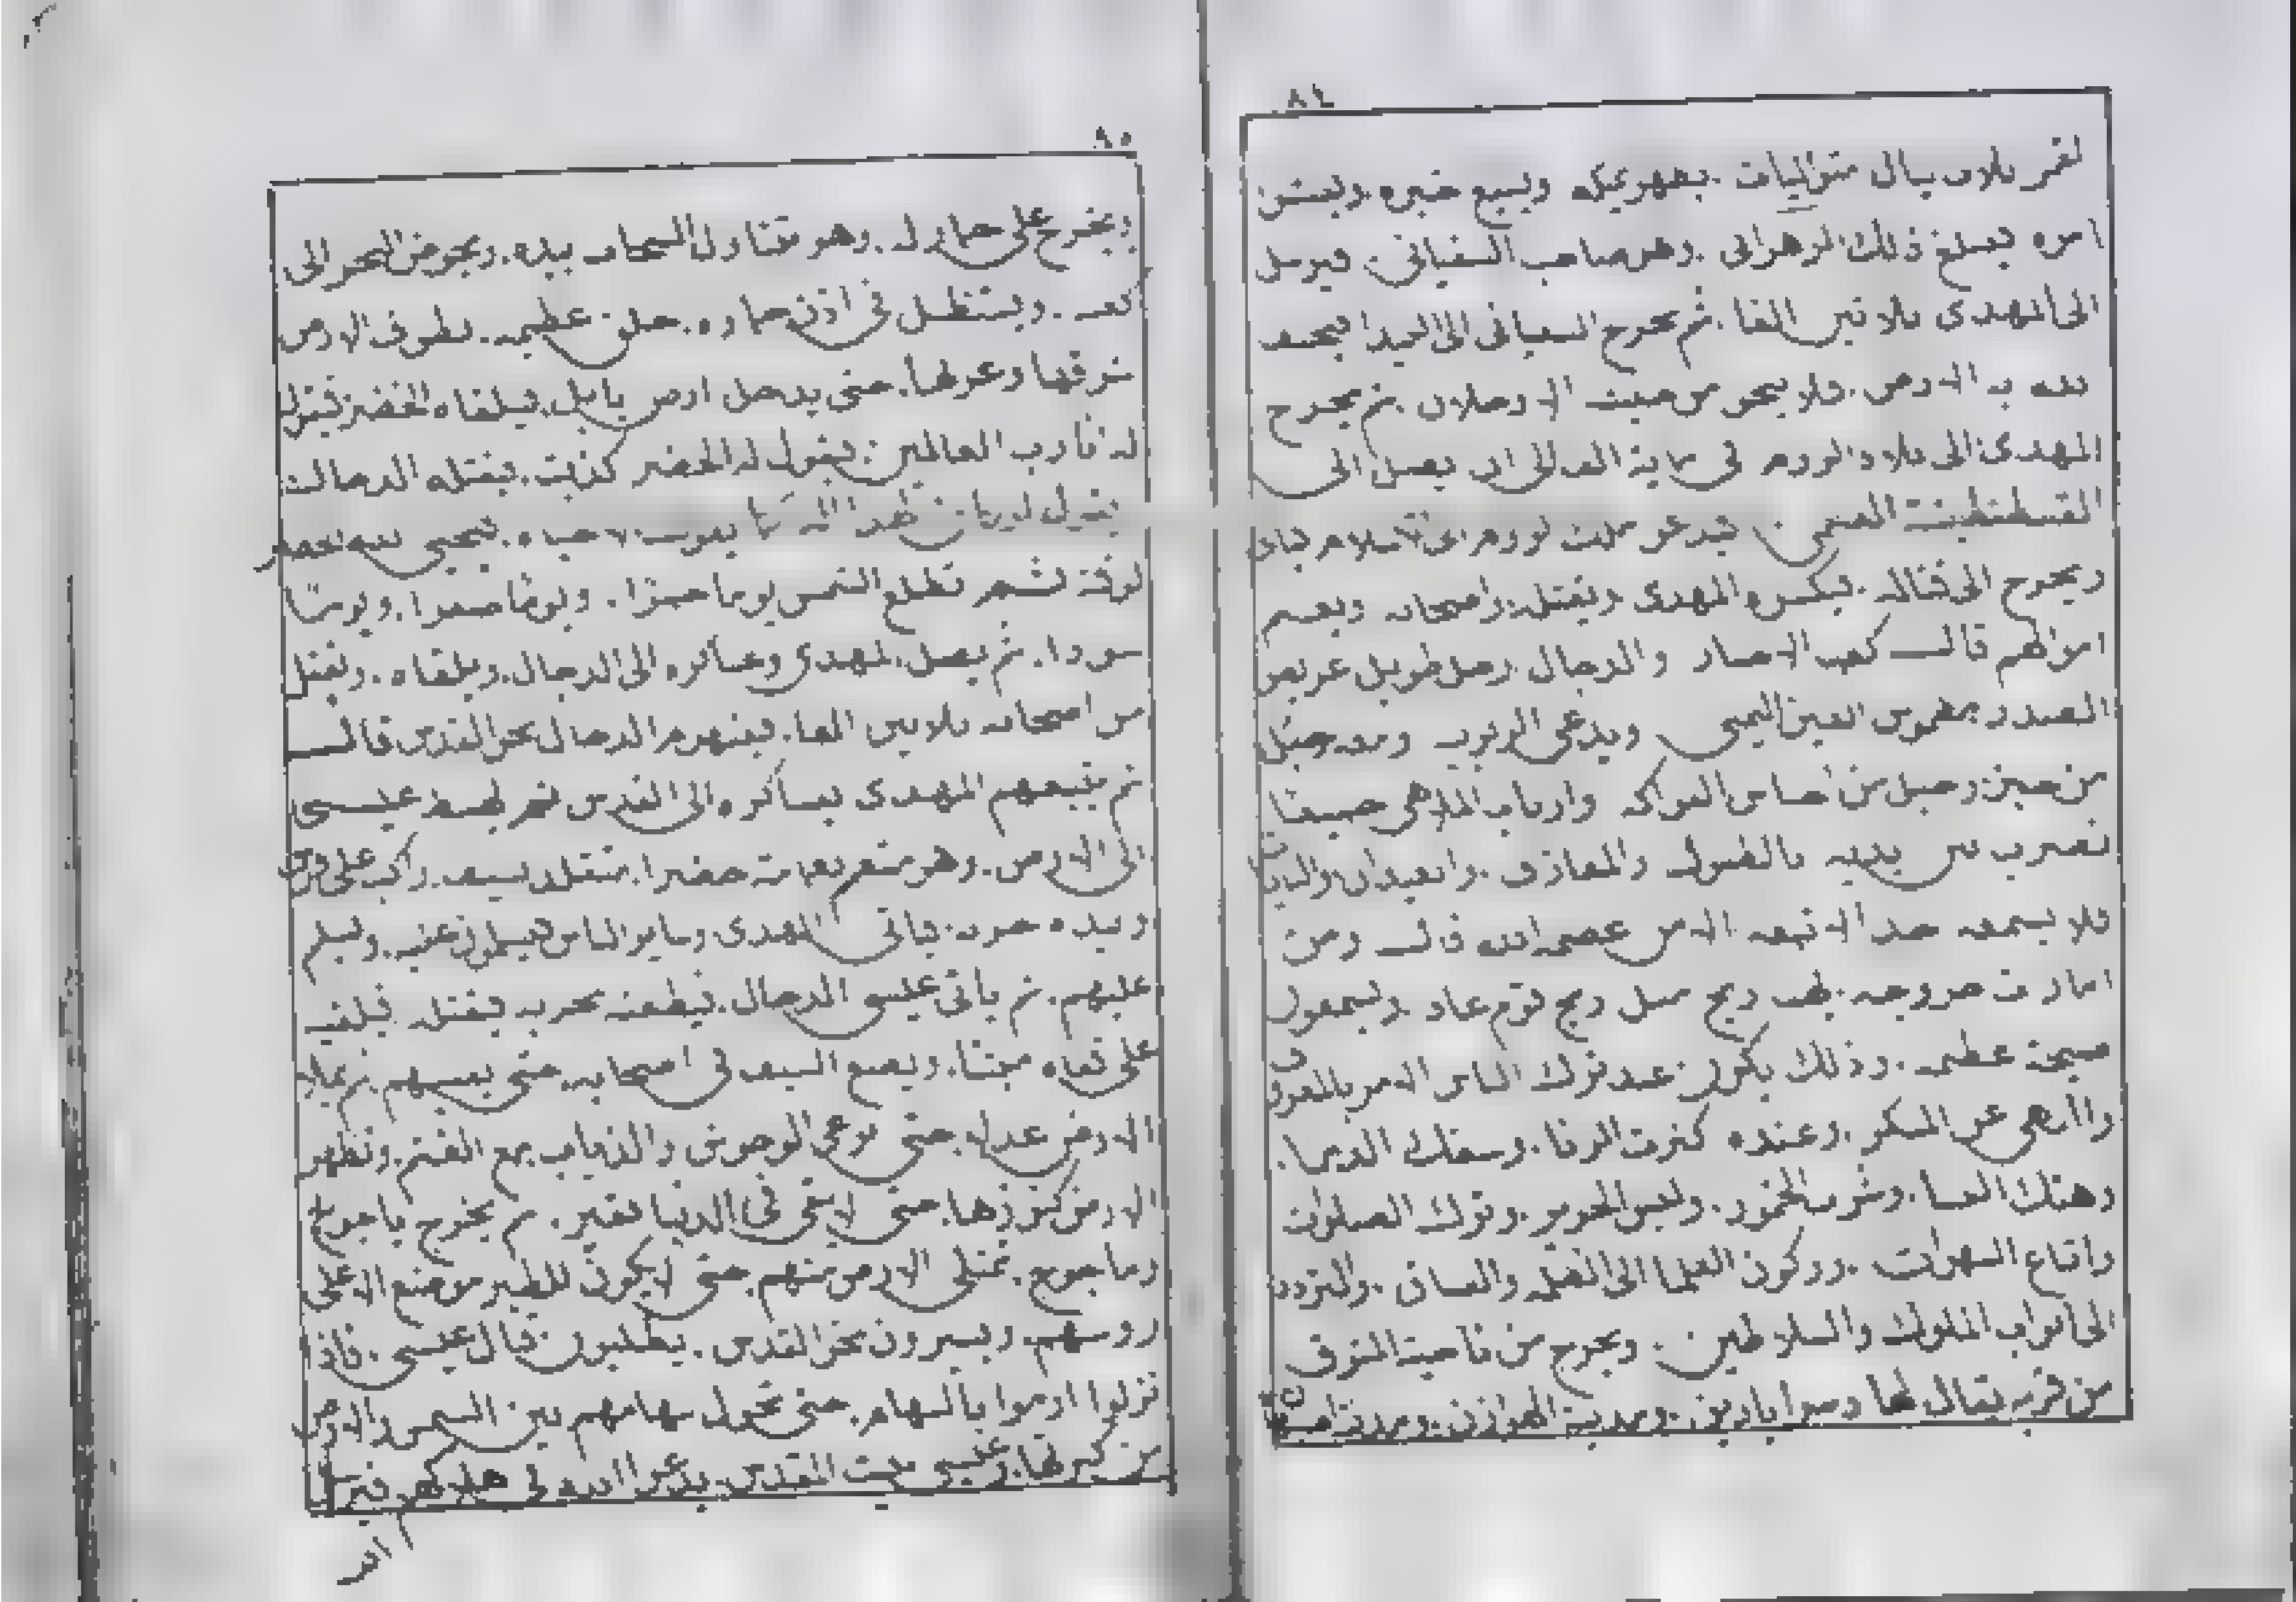 ٨٤
لقمر ثلاث ليال متواليات . يظهر بمكه ويشيع خبره . ويفشى
امره فيبلغ ذلك الزهراني . وهو صاحب السفياني . فيرسل
الى المهدي ثلاثين الفا . ثم يخرج السفياني الى البيدا فيخسف
الله به الارض . فلا ينجو من جيشه الا رجلان . ثم يخرج
المهدي الى بلاد الروم في ماية الف الى ان يصل الى
القسطنطينية العظمى . فيدعو ملك الروم الى الاسلام فيابى
ويخرج الى قتاله . فيكسره المهدي ويقتله واصحابه ويغنم
اموالهم قال كعب الاحبار والدجال رجل طويل عريض
الصدر مطموس العين اليمنى ويدعى الربوبيه ومعه جبل
من خبز وجبل من اجناس الفواكه وارباب الملاهي جميعا
تضرب بين يديه بالطبول والمعازف . والعيدان والنايات
فلا يسمعه احد الا تبعه الا من عصمه الله قال ومن
امارات خروجه . تهب ريح مثل ريح قوم عاد ويسمعون
صيحة عظيمه . وذلك يكون عند ترك الناس الامر بالمعروف
والنهي عن المنكر . وعنده كثرت الزنا . وسفك الدما .
وهتك النسا . وشرب الخمور . ولبس الحرير . وترك الصلوات
واتباع الشهوات . وركون العلما الى الظلمه والفساق . والتردد
الى ابواب الملوك والسلاطين . ويخرج من ناحية المشرق
من قريه يقال لها . ومدينة الهوازن . ومدينة اصبهان
٩٥
ويخرج على حمار له . وهو متناول السحاب بيده . ويخوض البحر الى
كعبه . ويستظل في اذن حماره . خلق عظيمه . يطوف الارض
شرقها وغربها . حتى يدخل ارض بابل . فيلقاه الخضر فيقول
له انا رب العالمين . فيقول له الخضر كذبت . فيقتله الدجال
فيقول لو كان لهذا اله كما يدعي لاحياه . فيحيي الله الخضر
لوقته ثم تطلع الشمس يوما حمرا . ويوما صفرا . ويوما
سودا . ثم يصل المهدي وعساكره الى الدجال . ويلقاه . ويقتل
من اصحابه ثلاثين الفا . فينهزم الدجال نحو القدس قال
ثم يتبعهم المهدي بعساكره الى القدس ثم يهبط عيسى
الى الارض . وهو متعمم بعمامة خضرا . متقلد بسيف . راكب على فرس
وبيده حربه . فياتي المهدي وساير الناس فيسلمون عليه . ويسلم
عليهم . ثم ياتي عيسى الدجال . فيطعنه بحربه فيقتله فيلقيه
على قفاه ميتا . ويضع السيف في اصحابه . حتى يفنيهم . ثم يملا
الارض عدلا . حتى ترعى الوحوش والذياب مع الغنم . وتظهر
الارض كنوزها . حتى لا يبقى في الدنيا فقير . ثم يخرج ياجوج
وماجوج . تمتلى الارض منهم . حتى لا يكون للطير موضع الا على
روسهم . ويسيرون نحو القدس . يطلبون قتال عيسى . فاذا
نزلوا ارموا بالسهام . حتى تحول سهامهم بين الشمس والارض
من كثرتها . وعيسى ببيت المقدس . يدعو الله في هلاكهم . فيرسل
الله